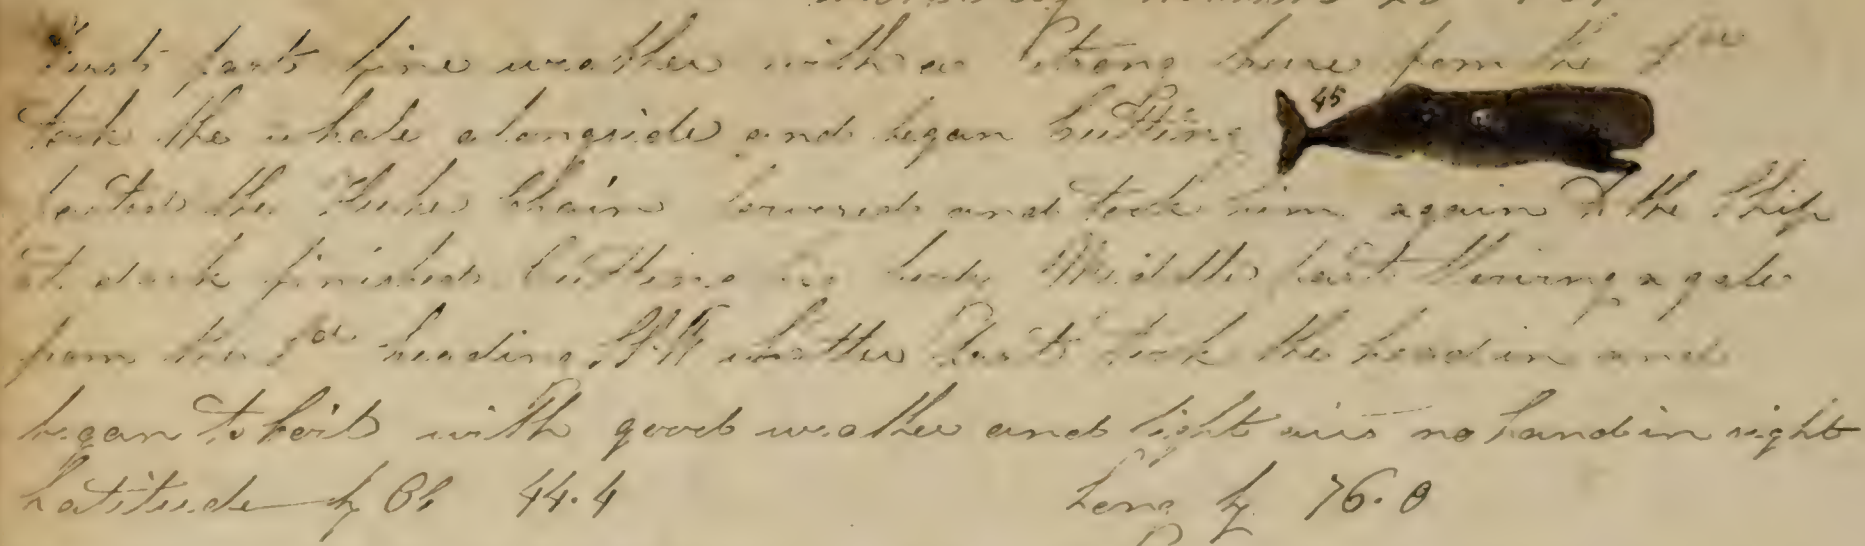 First part fine weather with a Strong breeze from the Sd
took the whale alongside and began Cutting
45
parted the fluke Chain lowered and took him again to the Ship
at dark finished Cutting his body Middle part blowing a gale
from the Sd heading latter Part took the head in and
began to boil with good weather and light airs no Land in sight
Latitude by Ob 44.4 Long by 76.0